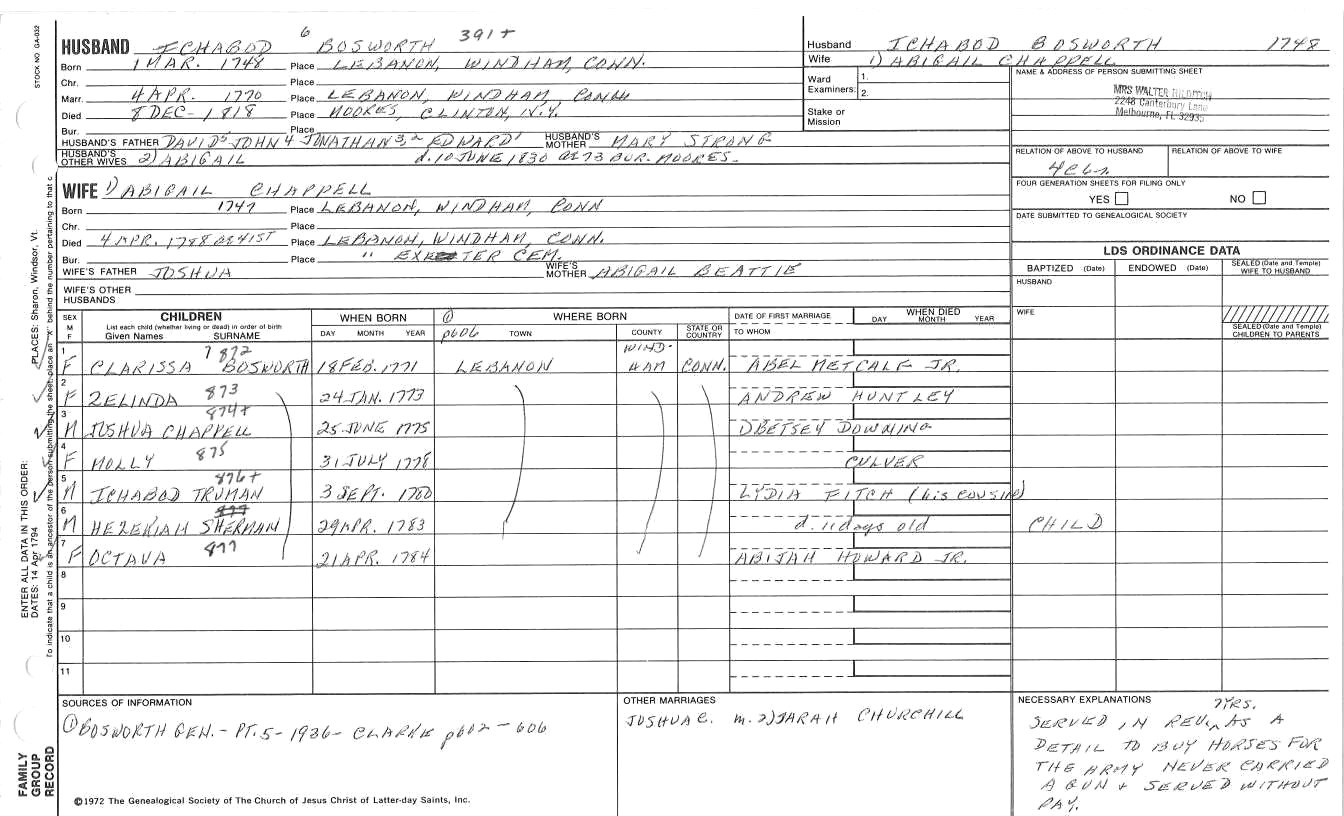 STOCK NO. GA-032
HUSBAND ICHABOD 6 BOSWORTH 391+
Born 1 MAR. 1748 Place LEBANON, WINDHAM, CONN.
Chr. Place
Marr. 4 APR. 1770 Place LEBANON, WINDHAM, CONN
Died 8 DEC- 1818 Place MOORES, CLINTON, N.Y.
Bur. Place
HUSBAND'S FATHER DAVID5 JOHN4 JONATHAN3,2 EDWARD1 HUSBAND'S MOTHER MARY STRONG
HUSBAND'S OTHER WIVES 2) ABIGAIL d. 10 JUNE 1830 at 73 BUR. MOORES-
Husband ICHABOD BOSWORTH 1748
Wife 1) ABIGAIL CHAPPELL
Ward Examiners: 1.
2.
Stake or Mission
NAME & ADDRESS OF PERSON SUBMITTING SHEET
MRS WALTER
2248 Canterbury Lane
Melbourne, FL 32935
RELATION OF ABOVE TO HUSBAND RELATION OF ABOVE TO WIFE
FOUR GENERATION SHEETS FOR FILING ONLY
YES NO
DATE SUBMITTED TO GENEALOGICAL SOCIETY
WIFE 1) ABIGAIL CHAPPELL
Born 1747 Place LEBANON, WINDHAM, CONN
Chr. Place
Died 4 APR. 1788 at 41ST Place LEBANON, WINDHAM, CONN.
Bur. Place " EXETER CEM.
WIFE'S FATHER JOSHUA WIFE'S MOTHER ABIGAIL BEATTIE
WIFE'S OTHER HUSBANDS
LDS ORDINANCE DATA
BAPTIZED (Date) ENDOWED (Date) SEALED (Date and Temple) WIFE TO HUSBAND
HUSBAND
WIFE
SEALED (Date and Temple) CHILDREN TO PARENTS
SEX M F CHILDREN List each child (whether living or dead) in order of birth Given Names SURNAME
WHEN BORN DAY MONTH YEAR
① p606 WHERE BORN TOWN COUNTY STATE OR COUNTRY
DATE OF FIRST MARRIAGE TO WHOM
WHEN DIED DAY MONTH YEAR
1 F CLARISSA 7 872 BOSWORTH 18 FEB. 1771 LEBANON WIND-HAM CONN. ABEL METCALF JR.
2 F ZELINDA 873 24 JAN. 1773 ANDREW HUNTLEY
3 M JOSHUA CHAPPELL 874+ 25 JUNE 1775 1) BETSEY DOWNING
4 F MOLLY 875 31 JULY 1778 CULVER
5 M ICHABOD TRUMAN 876+ 3 SEPT. 1780 LYDIA FITCH (his cousin)
6 M HEZEKIAH SHERMAN 877 29 APR. 1783 d. 11 days old CHILD
7 F OCTAVA 877 21 APR. 1784 ABIJAH HOWARD JR.
8
9
10
11
SOURCES OF INFORMATION
① BOSWORTH GEN.- PT. 5-1936- CLARKE p602-606
OTHER MARRIAGES
JOSHUA C. m. 2) SARAH CHURCHILL
NECESSARY EXPLANATIONS
7YRS.
SERVED IN REV. AS A
DETAIL TO BUY HORSES FOR
THE ARMY NEVER CARRIED
A GUN & SERVED WITHOUT
PAY.
ENTER ALL DATA IN THIS ORDER:
DATES: 14 Apr 1794 PLACES: Sharon, Windsor, Vt.
To indicate that a child is an ancestor of the person submitting the sheet, place an "X" behind the number pertaining to that c
FAMILY GROUP RECORD
©1972 The Genealogical Society of The Church of Jesus Christ of Latter-day Saints, Inc.